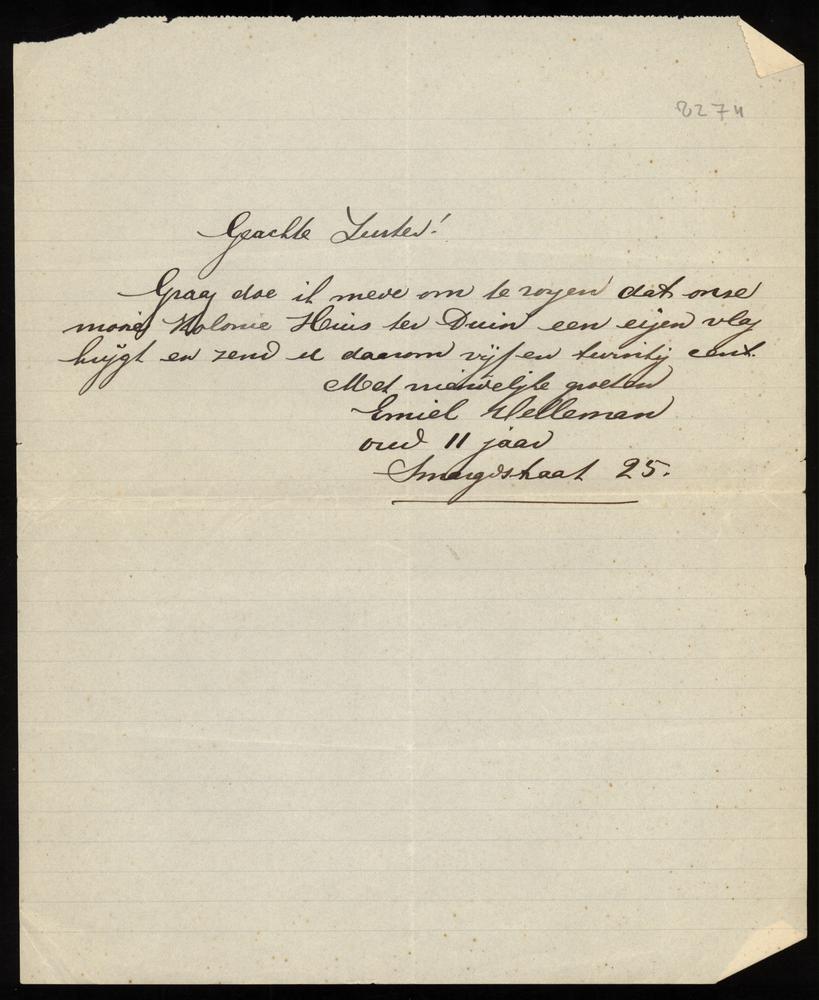 8274
Geachte Zuster!
Graag doe ik mede om te zorgen dat onse
mooie Kolonie Huis ter Duin een eigen vlag
krijgt en zend u daarom vijf en twintig cent.
Met vriendelijke groeten
Emiel Velleman
oud 11 jaar
Smaragdstraat 25.